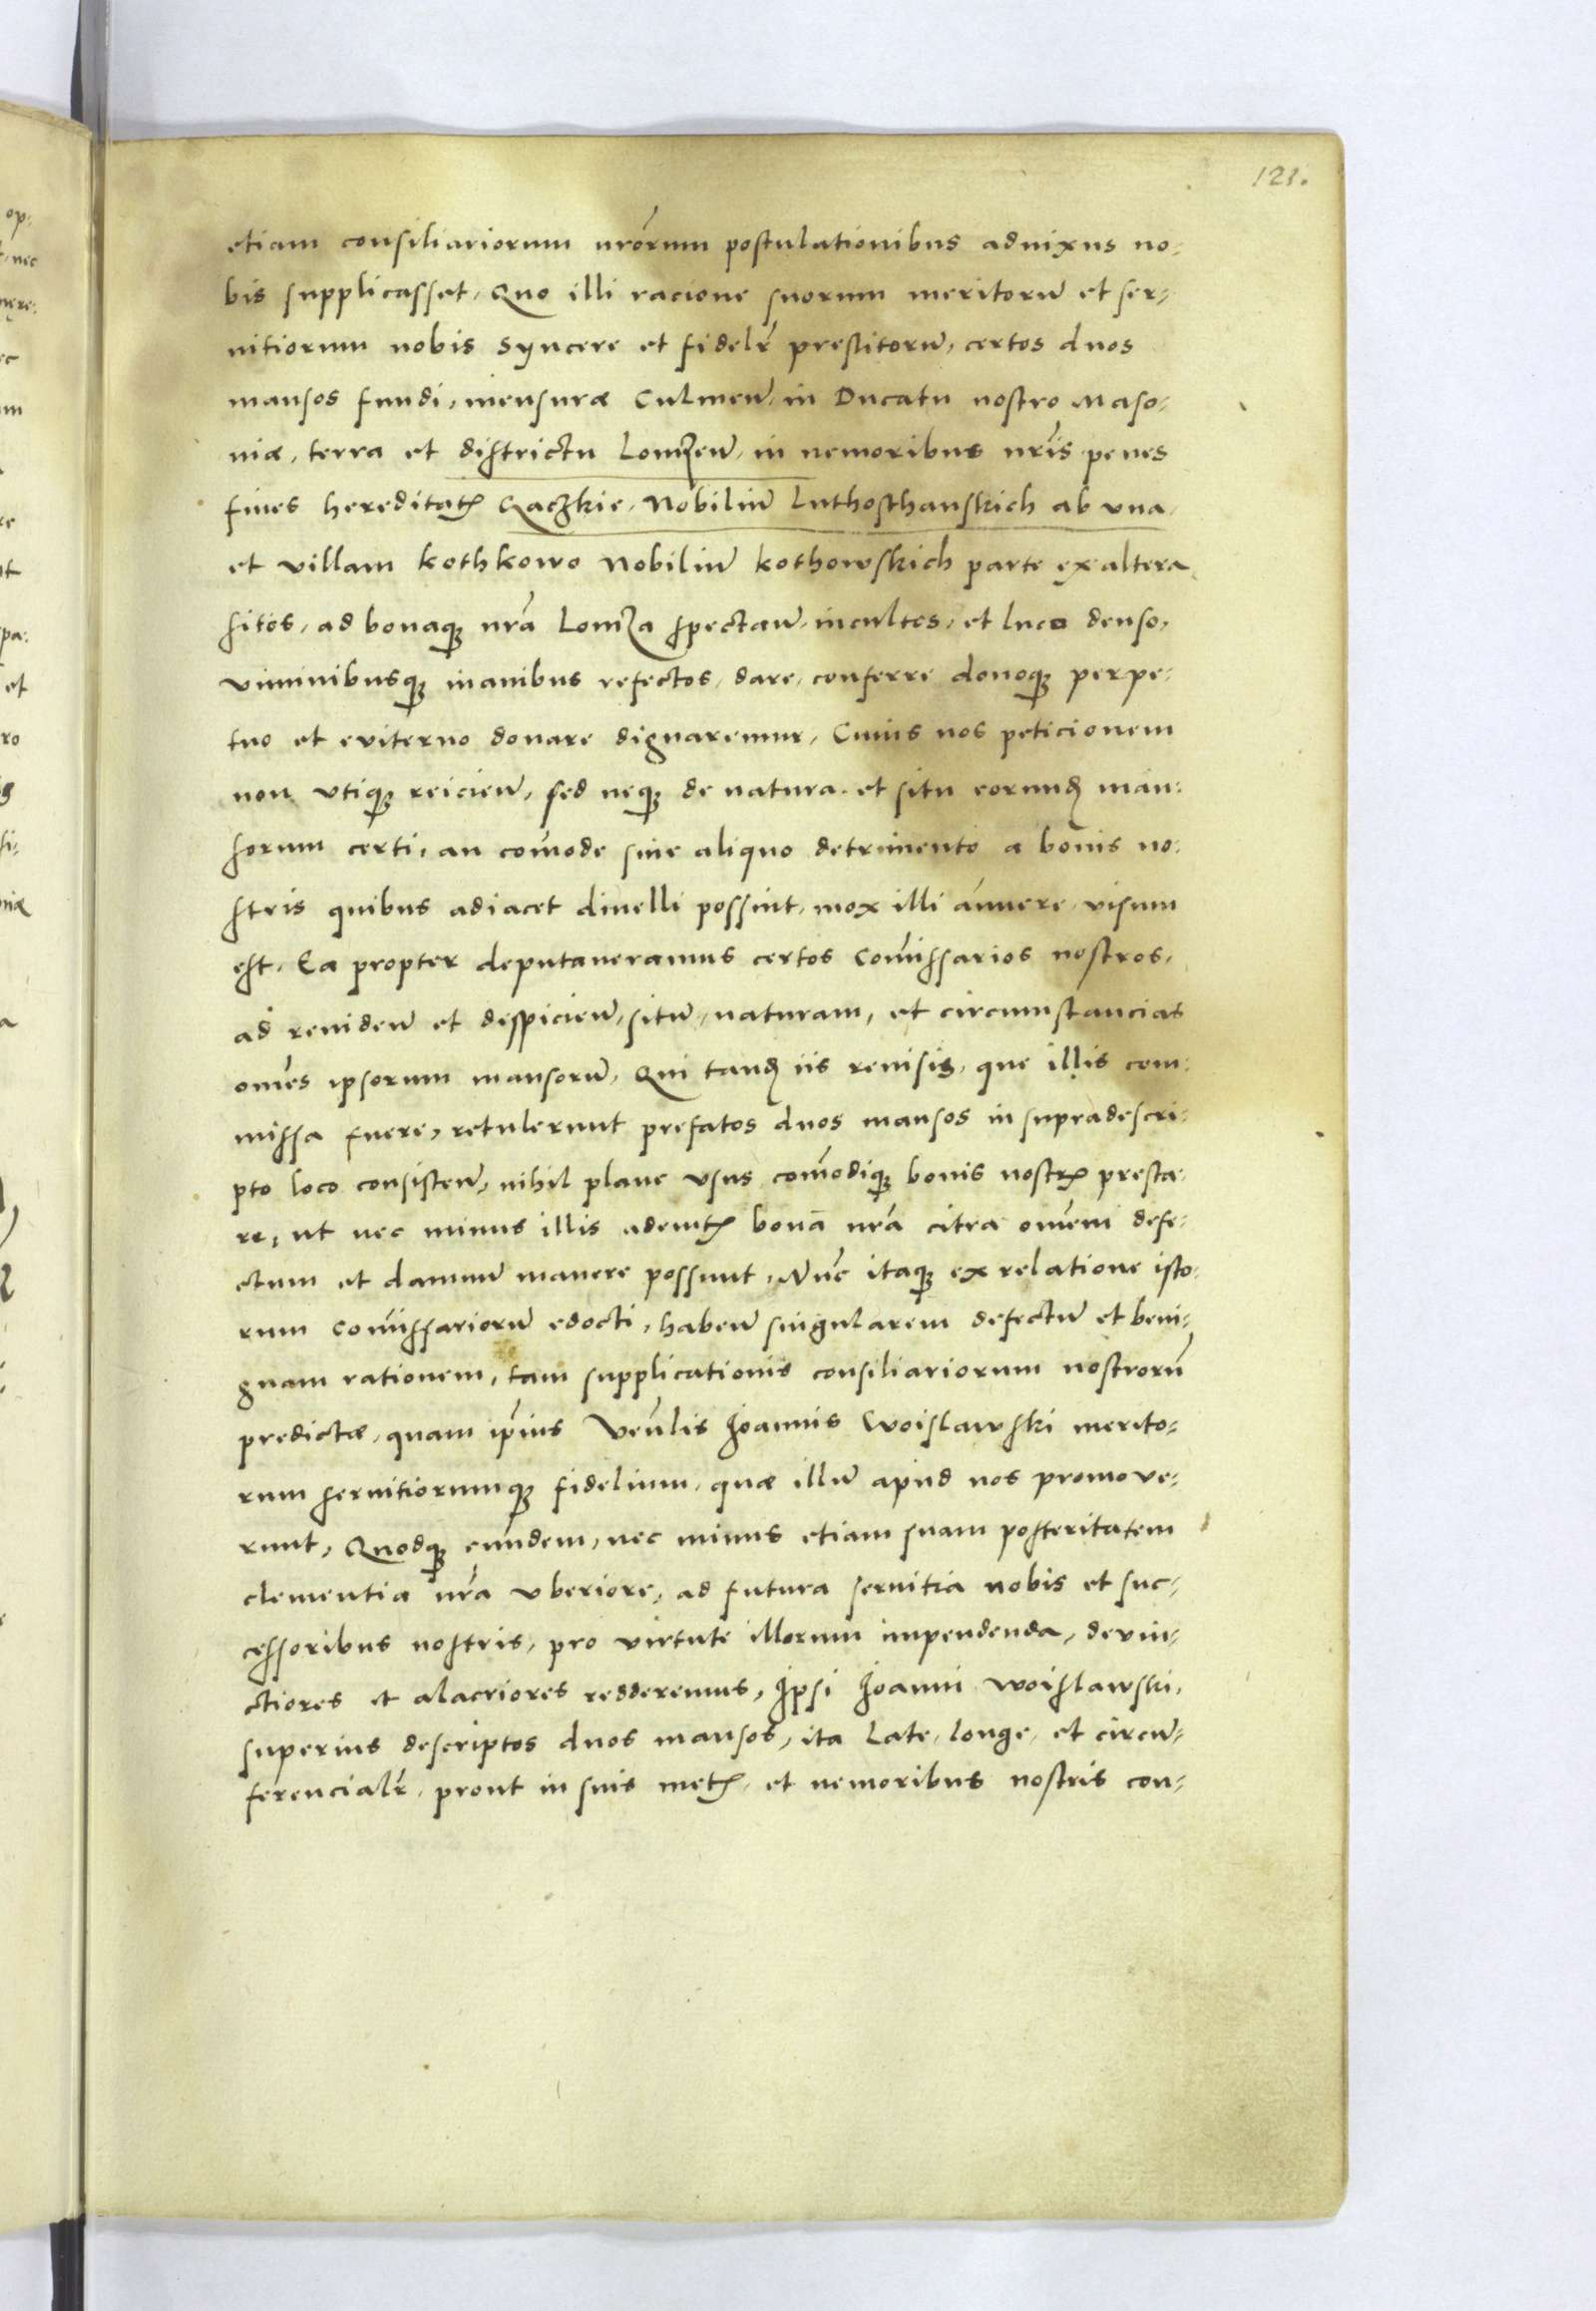 121.
etiam consiliariorum nrōrum postulationibus adnixus no-
bis supplicasset, Quo illi racione suorum meritorū et ser-
uitiorum nobis syncere et fidelr̄ prestitorū, certos duos
mansos fundi, mensuræ Culmen̄, in Ducatu nostro Maso-
uiæ, terra et districtu Lomzen̄, in nemoribus nrīs penes
fines hereditatꝭ Gaczkie, Nobiliū Luthosthanskich ab vna,
et villam Kothkowo Nobiliū Kothowskich parte ex altera
sitos, ad bonaqꝫ nrā Lomza spectan̄, incultos, et luco denso,
viminibusqꝫ inanibus refectos, dare, conferre donoqꝫ perpe-
tuo et eviterno donare dignaremur, Cuius nos peticionem
non vtiqꝫ reicien̄, sed neqꝫ de natura et situ eorundꝫ man-
sorum certi, an com̄ode sine aliquo detrimento a bonis no-
stris quibus adiacet diuelli possint, mox illi annuere visum
est. Ea propter deputaueramus certos Com̄issarios nostros,
ad reuiden̄ et despicien̄, sitū, naturam, et circumstancias
omēs ipsorum mansorū, Qui tandꝫ iis reuisis, que illis com-
missa fuere, retulerunt prefatos duos mansos in supradescri-
pto loco consisten̄, nihil plane vsus com̄odiqꝫ bonis nostrꝭ presta-
re, ut nec minus illis ademtꝭ bona nrā citra omēm defe-
ctum et damnū manere possunt, Nūc itaqꝫ ex relatione isto-
rum Com̄issariorū edocti, haben̄ singularem defectū et beni-
gnam rationem, tam supplicationis consiliariorum nostrorū
predictæ, quam ipīus Veūlis Joannis Woislawski merito-
rum seruitiorumqꝫ fidelium, quæ illū apud nos promove-
runt, Quodqꝫ eundem, nec minus etiam suam posteritatem
clementia nrā vberiore, ad futura seruitia nobis et suc-
cessoribus nostris, pro virtute illorum impendenda, devin-
ctiores et alacriores redderemus, Ipsi Joanni Woislawski,
superius descriptos duos mansos, ita late, longe, et circū-
ferencialr̄, prout in suis metꝭ, et nemoribus nostris con-